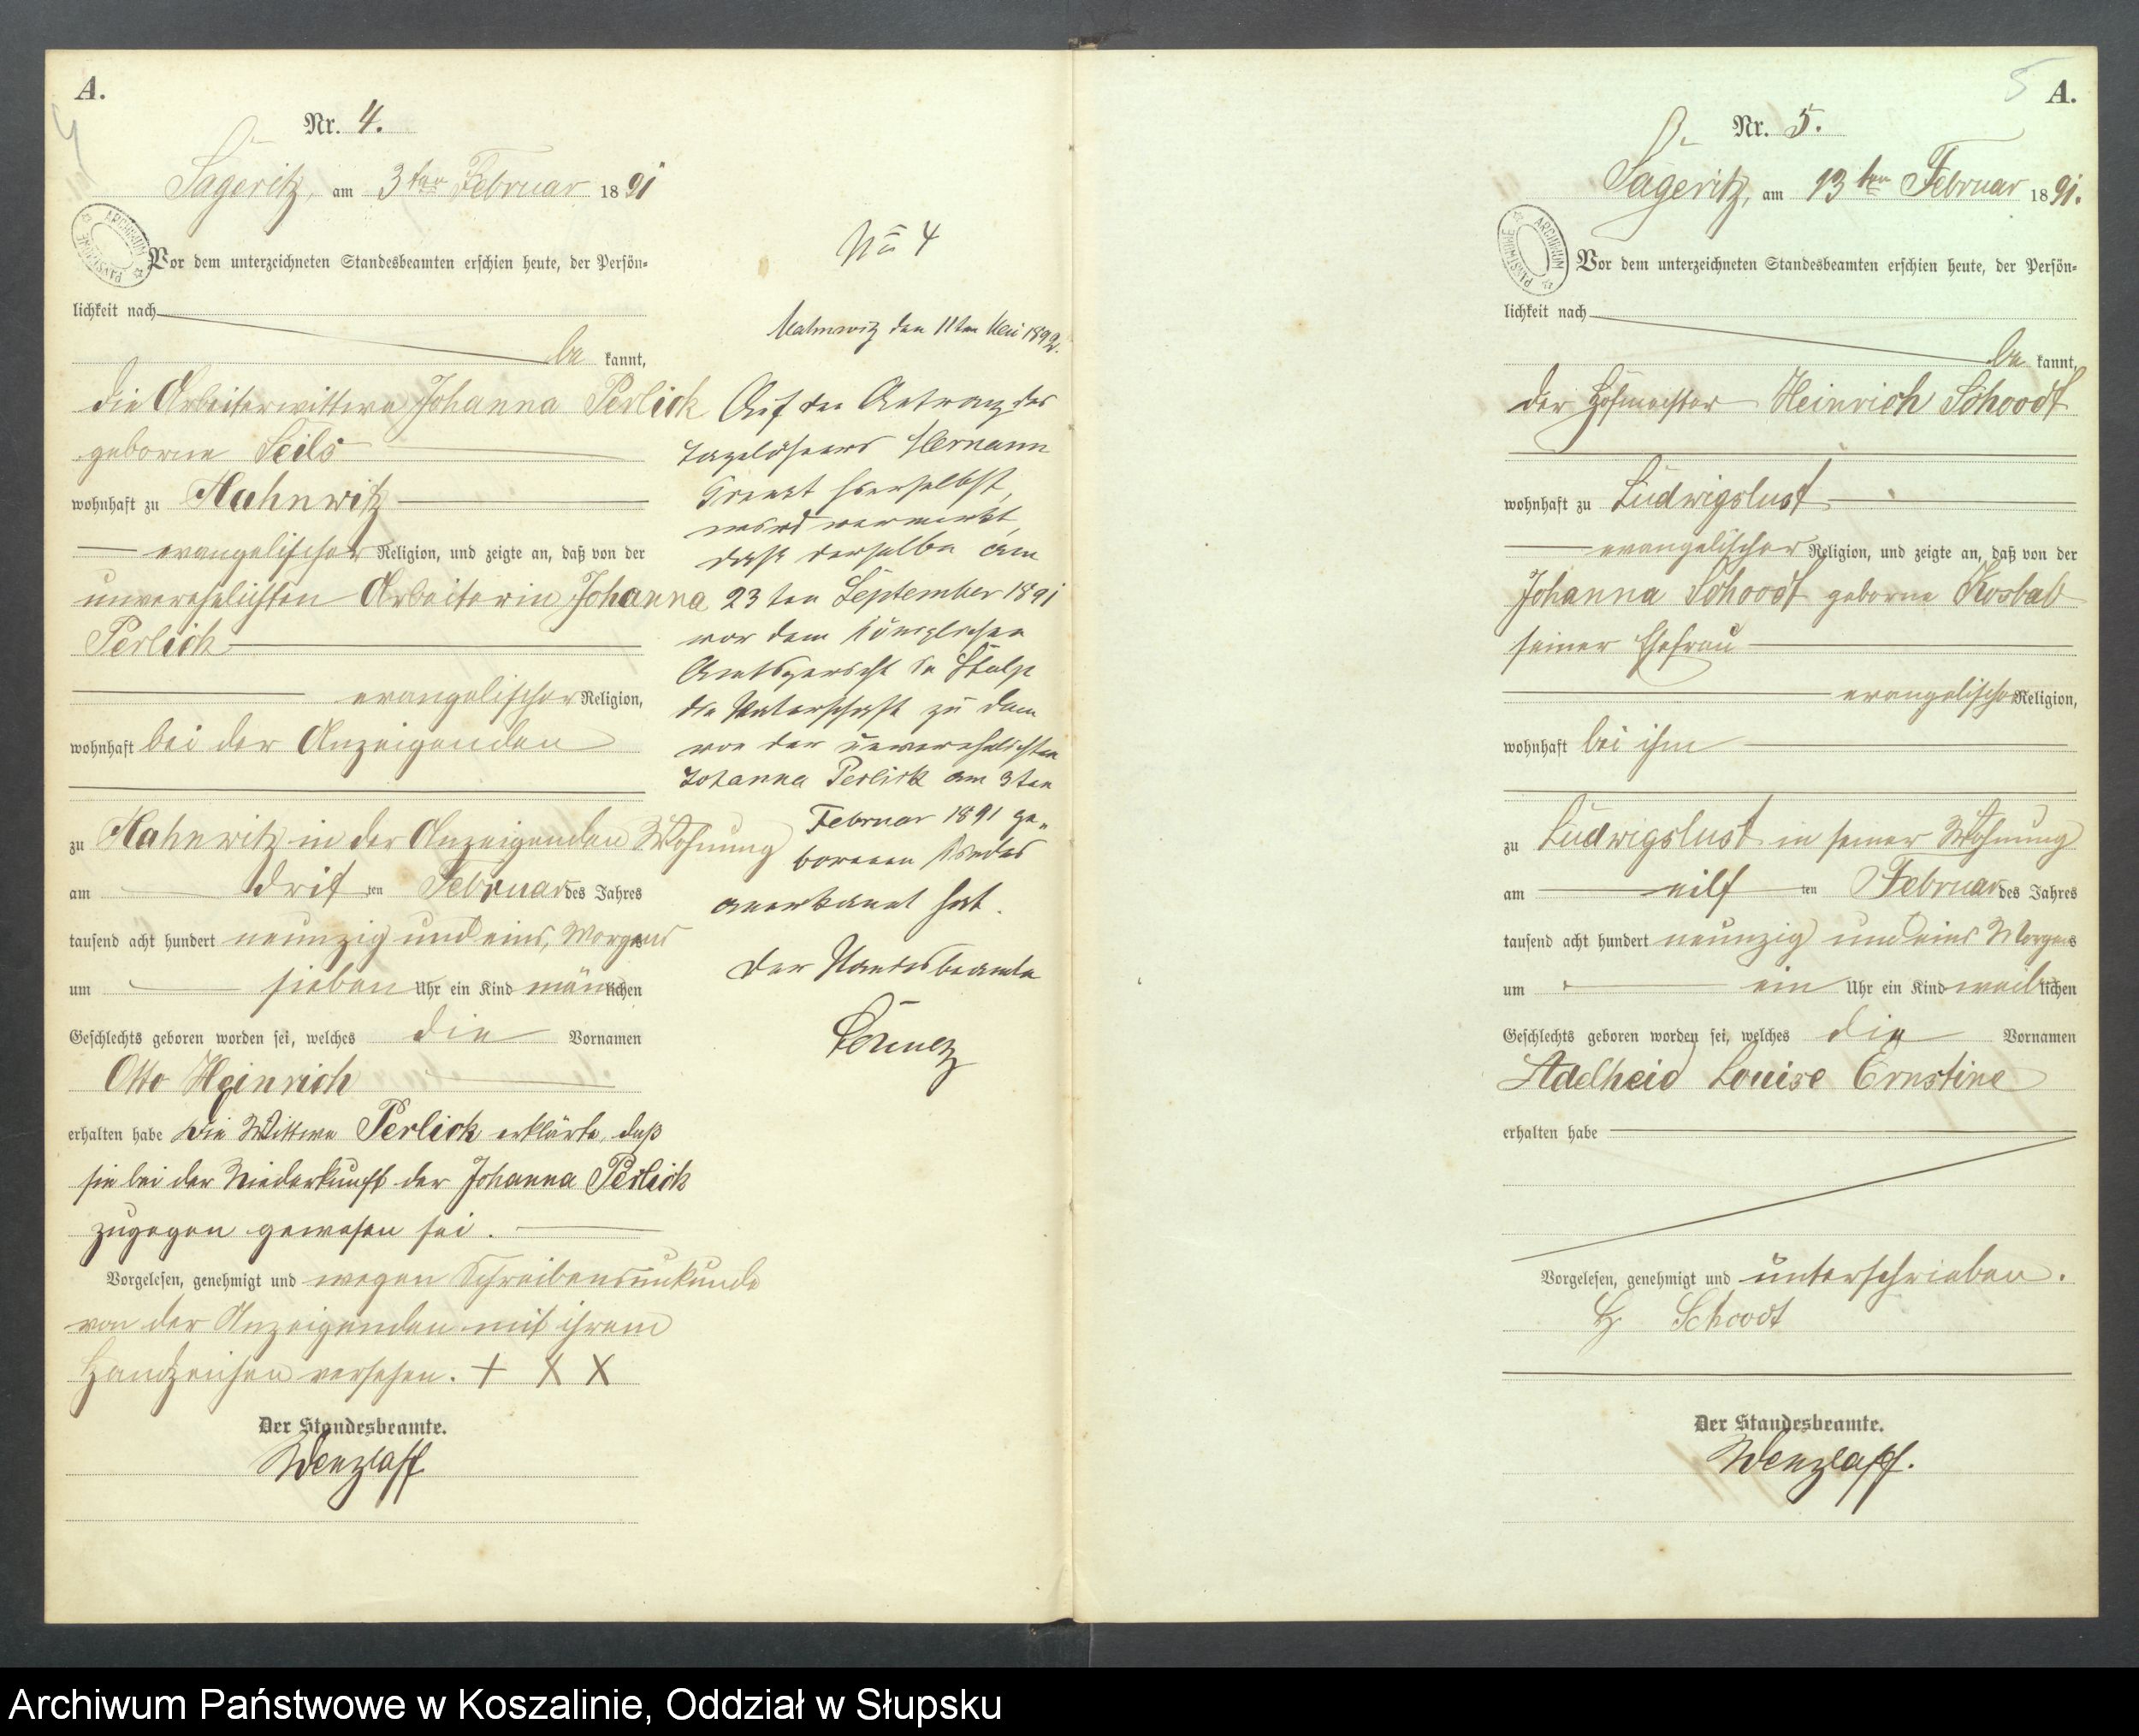 A.
4
Nr. 4.
Sageritz, am 3ten Februar 1891
ARCHIWUM PAŃSTWOWE
Vor dem unterzeichneten Standesbeamten erschien heute, der Persön-
lichkeit nach
be kannt,
die Arbeiterwittwe Johanna Perlick
geborne Seils
wohnhaft zu Hahnwitz
evangelischer Religion, und zeigte an, daß von der
unverehelichten Arbeiterin Johanna
Perlick
evangelischer Religion,
wohnhaft bei der Anzeigenden
zu Hahnwitz in der Anzeigenden Wohnung
am dritten Februar des Jahres
tausend acht hundert neunzig und eins, Morgens
um sieben Uhr ein Kind männlichen
Geschlechts geboren worden sei, welches die Vornamen
Otto Heinrich
erhalten habe Die Wittwe Perlick erklärte, daß
sie bei der Niederkunft der Johanna Perlick
zugegen gewesen sei.
Vorgelesen, genehmigt und wegen Schreibensunkunde
von der Anzeigenden mit ihrem
Handzeichen versehen. + X X
Der Standesbeamte.
Wenzlaff
No 4
den 11ten Mai 1892.
Auf den Antrag des
Tagelöhners Hermann
hierselbst,
wird vermerkt,
daß derselbe am
23ten September 1891
vor dem Königlichen
Amtsgericht in Stolp
die Vaterschaft zu dem
von der unverehelichten
Johanna Perlick am 3ten
Februar 1891 ge-
borenen Kindes
anerkannt hat.
Der Standesbeamte
5
A.
Nr. 5.
Sageritz, am 13ten Februar 1891.
ARCHIWUM PAŃSTWOWE
Vor dem unterzeichneten Standesbeamten erschien heute, der Persön-
lichkeit nach
be kannt,
der Hofmeister Heinrich Schoodt
wohnhaft zu Ludwigslust
evangelischer Religion, und zeigte an, daß von der
Johanna Schoodt geborne Kosbab
seiner Ehefrau
evangelischer Religion,
wohnhaft bei ihm
zu Ludwigslust in seiner Wohnung
am eilf ten Februar des Jahres
tausend acht hundert neunzig und eins Morgens
um ein Uhr ein Kind weiblichen
Geschlechts geboren worden sei, welches die Vornamen
Adelheid Louise Ernstine
erhalten habe
Vorgelesen, genehmigt und unterschrieben.
H Schoodt
Der Standesbeamte.
Wenzlaff.
Archiwum Państwowe w Koszalinie, Oddział w Słupsku